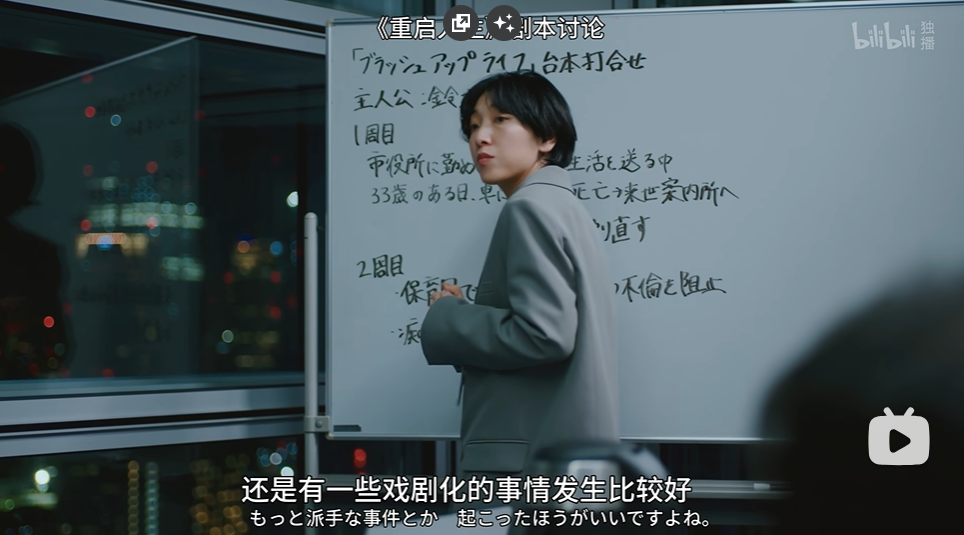 《重启人生》剧本讨论
bilibili 独播
「ブラッシュアップライフ」台本打合せ
主人公:鈴
1周目
市役所に勤め 生活を送る中
33歳のある日、車に 死亡→来世案内所へ
り直す
2周目
・保育園で 不倫を阻止
・
还是有一些戏剧化的事情发生比较好
もっと派手な事件とか 起こったほうがいいですよね。